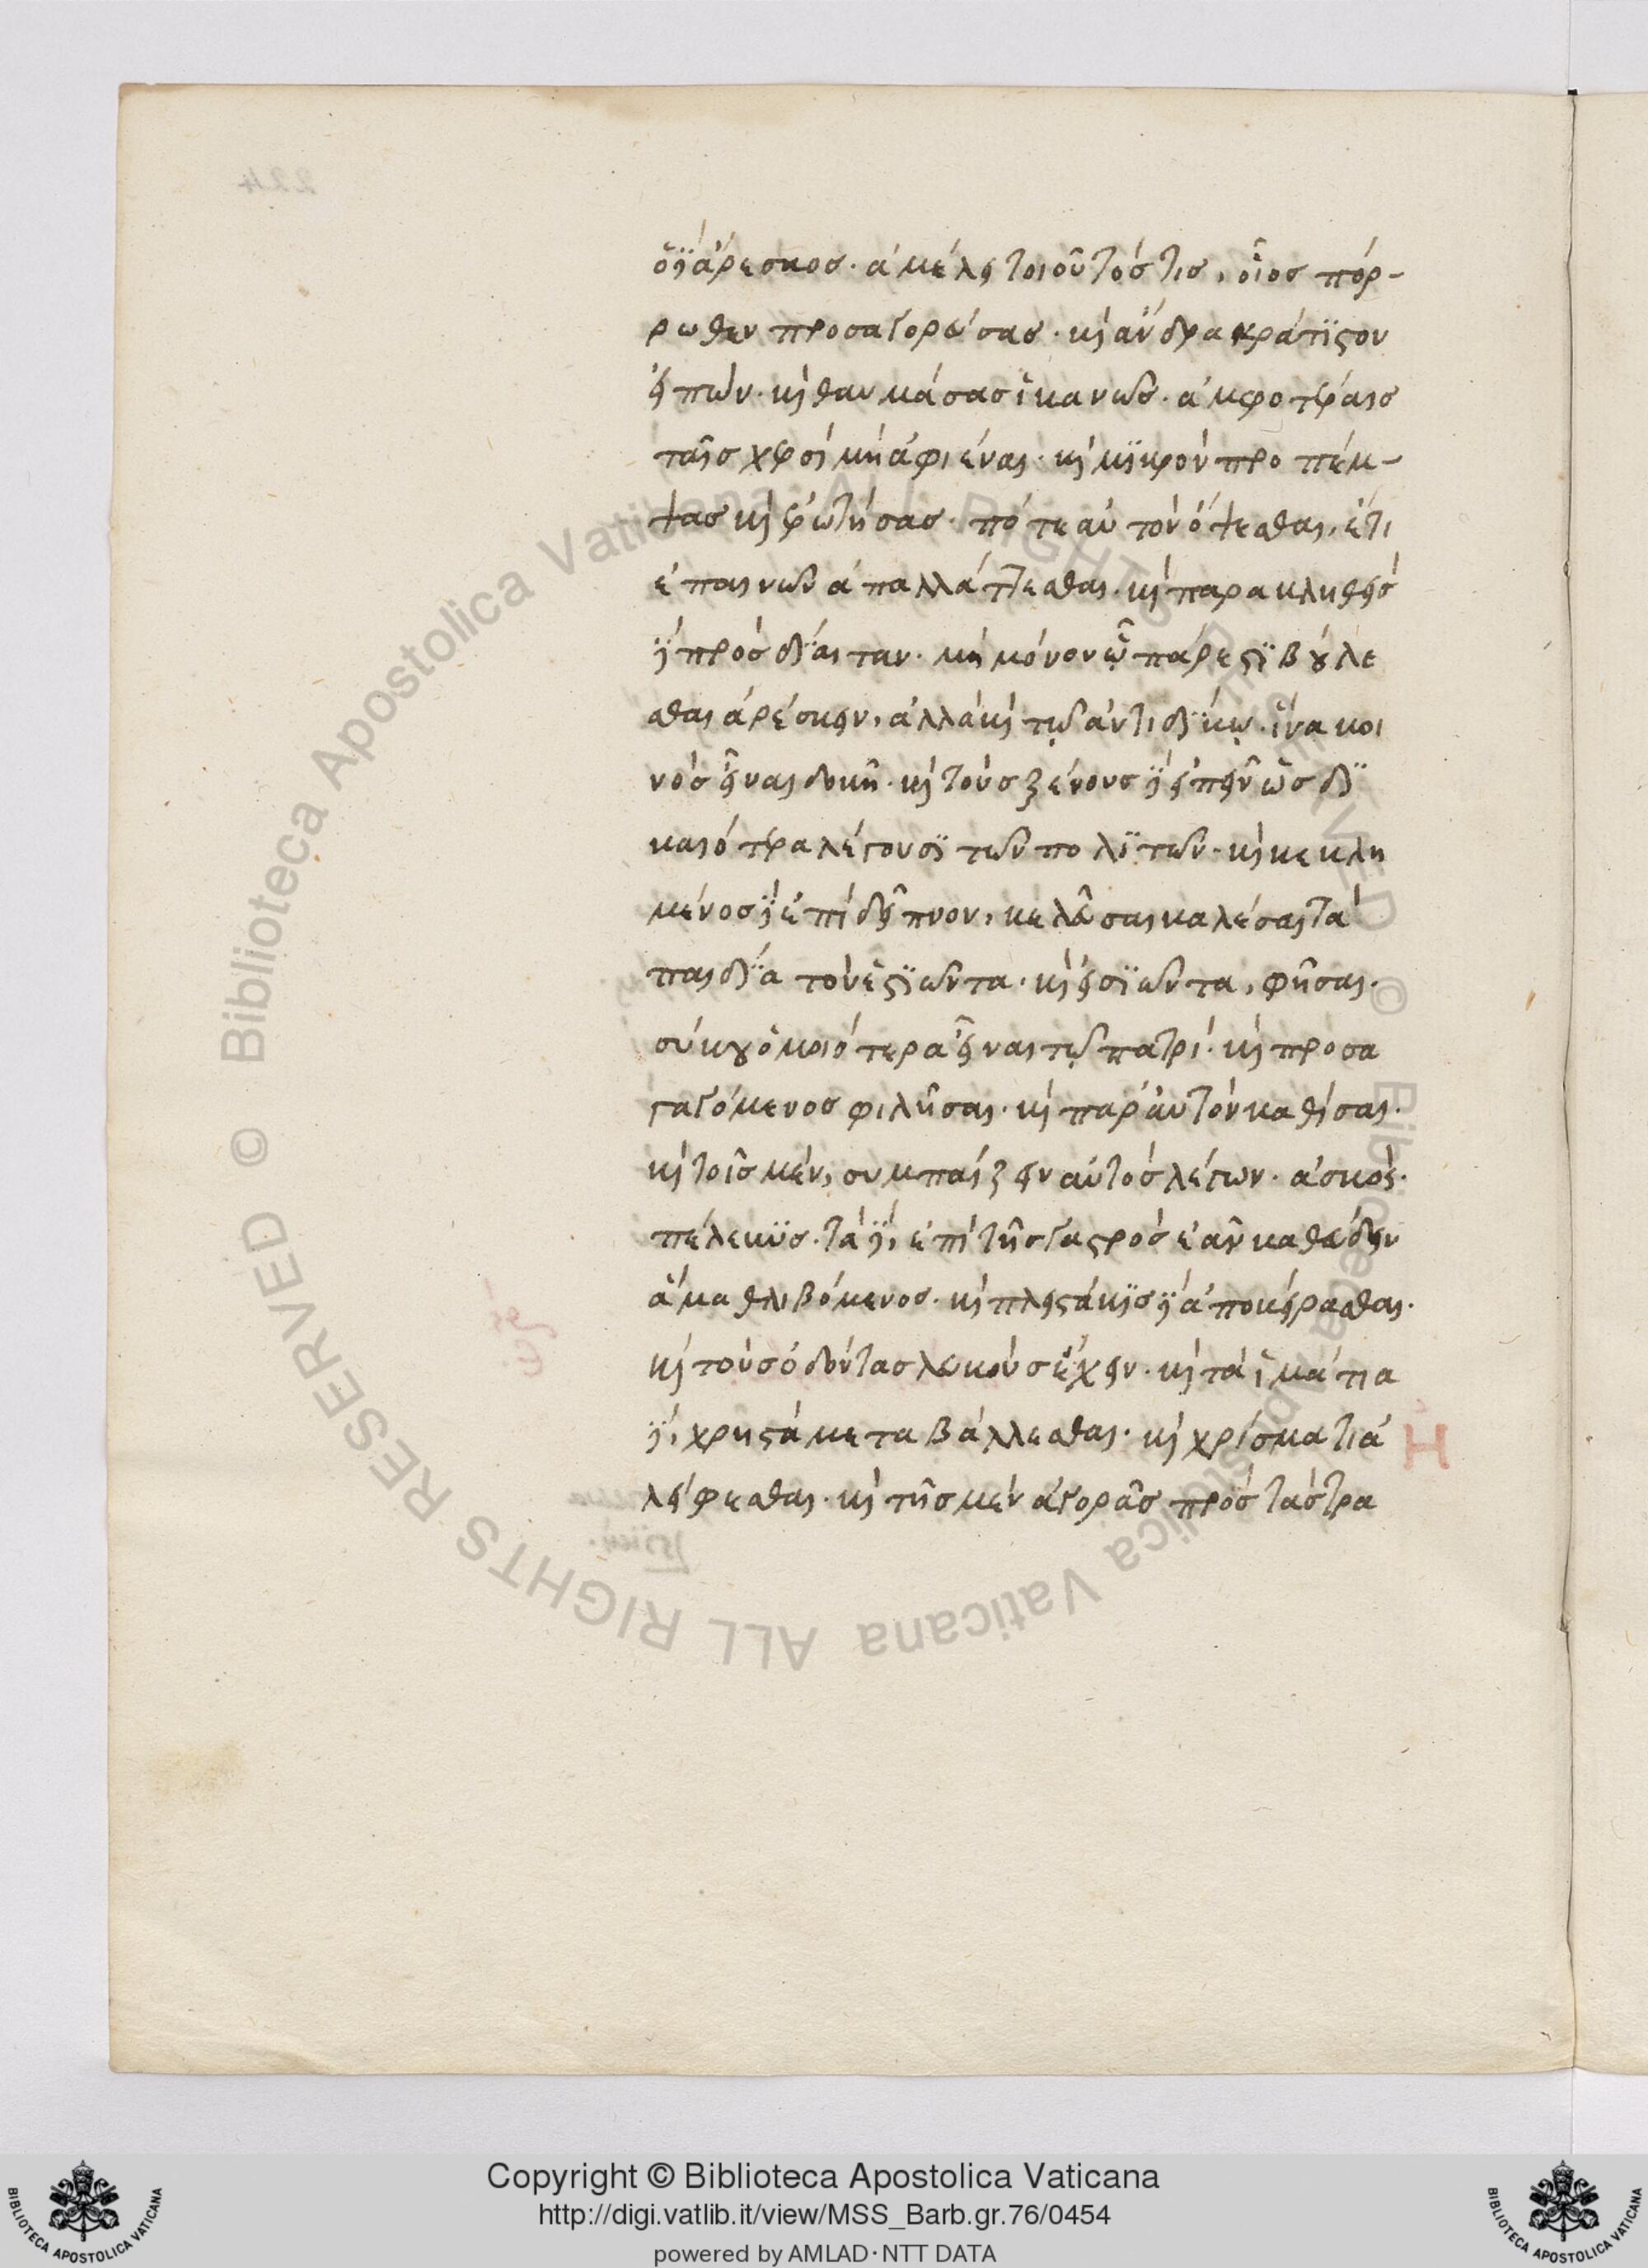 ὁ δὲ ἄρεσκος. ἀμέλει τοιοῦτός τις, οἷος πόρ-
ρωθεν προσαγορεύσας. καὶ ἄνδρα κράτιστον
εἰπών. καὶ θαυμάσας ἱκανῶς. ἀμφοτέραις
ταῖς χερσὶ μὴ ἀφιέναι. καὶ μικρὸν προπέμ-
ψας καὶ ἐρωτήσας. πότε αὐτὸν ὄψεσθαι, ἔτι
ἐπαινῶν ἀπαλλάττεσθαι. καὶ παρακληθεὶς
δὲ πρὸς δίαιταν. μὴ μόνον ᾧ πάρεστι βούλε
σθαι ἀρέσκειν, ἀλλὰ καὶ τῷ ἀντιδίκῳ. ἵνα κοι
νὸς εἶναι δοκῇ. καὶ τοὺς ξένους δὲ εἰπεῖν ὡς δι
καιότερα λέγουσι τῶν πολιτῶν. καὶ κεκλη
μένος δὲ ἐπὶ δεῖπνον, κελεῦσαι καλέσαι τὰ
παιδία τὸν ἑστιῶντα. καὶ εἰσιῶντα, φῆσαι.
σύκου ὁμοιότερα εἶναι τῷ πατρί. καὶ προσα
γαγόμενος φιλῆσαι. καὶ παρ' αὐτὸν καθίσαι.
καὶ τοῖς μὲν, συμπαίζειν αὐτὸς λέγων. ἀσκός.
πέλεκυς. τὰ δὲ, ἐπὶ τῆς γαστρὸς ἐᾶν καθεύδειν
ἅμα θλιβόμενος. καὶ πλειστάκις δὲ ἀποκείρασθαι.
καὶ τοὺς ὀδόντας λευκοὺς ἔχειν. καὶ τὰ ἱμάτια
δὲ, χρηστὰ μεταβάλλεσθαι. καὶ χρίσματι ἀ
λείφεσθαι. καὶ τῆς μὲν ἀγορᾶς πρὸς τὰς τρα
H
Copyright © Biblioteca Apostolica Vaticana
http://digi.vatlib.it/view/MSS_Barb.gr.76/0454
powered by AMLAD · NTT DATA
BIBLIOTECA APOSTOLICA VATICANA
BIBLIOTECA APOSTOLICA VATICANA
© Biblioteca Apostolica Vaticana ALL RIGHTS RESERVED
© Biblioteca Apostolica Vaticana ALL RIGHTS RESERVED